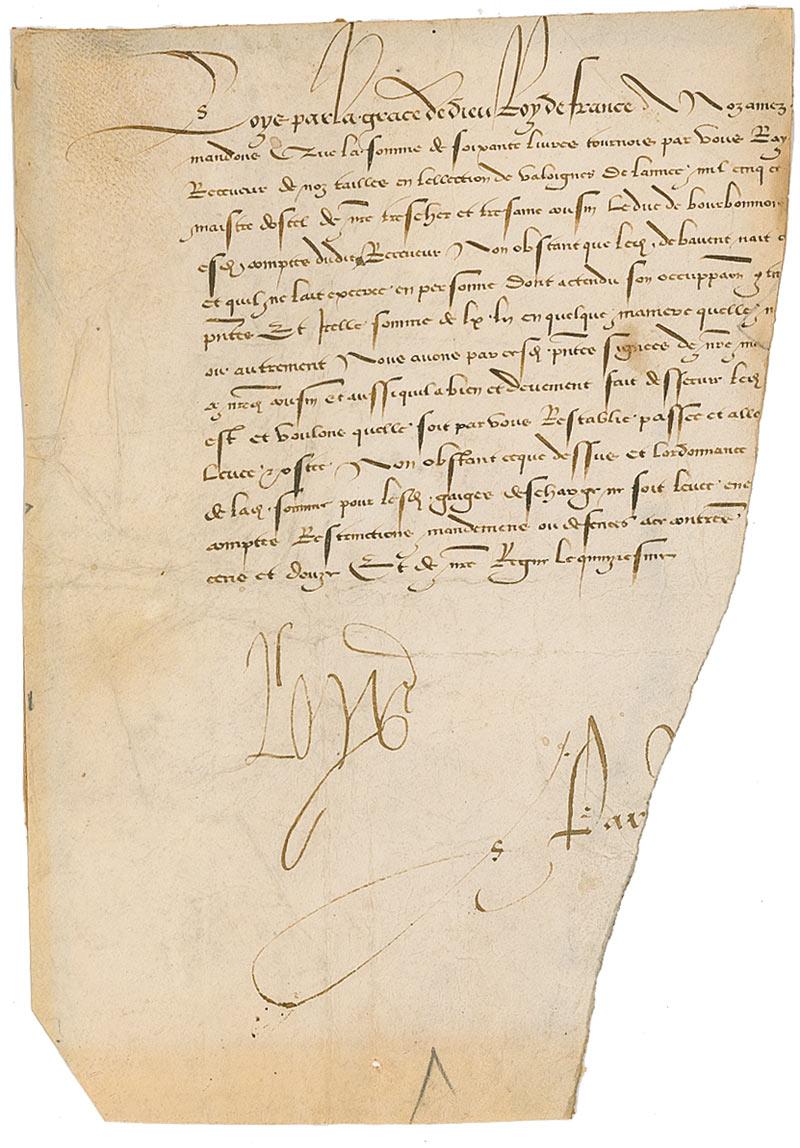 Loys par la grace de dieu Roy de france A Noz amez
mandons Que la somme de soixante livres tournois par vous Ray
Receveur de noz tailles en lellection de valoignes de lannee mil cinq ce
maistre dostel de nre trescher et tresame cousin Le duc de bourbonnois
esd comptes dudit Receveur Non obstant que led de bavent nait
et quil ne lait excercee en personne dont actendu son occuppaon
pntes Et Icelle somme de lx lt en quelque maniere quelle
ou autrement Nous avons par cesd pntes signees de nre ma
a nred cousin et aussi quil a bien et deuement fait desservir led
est et voulons quelle soit par vous Restablie passee et allo
Levee et ostee Non obstant ce que dessus et lordonnance
de lad somme pour lesd gaiges descharge ne soit levee ene
comptes Restrinctions mandemens ou defences ace contrres
cens et douze Et de nre Regne le quinziesme
Loys
Par